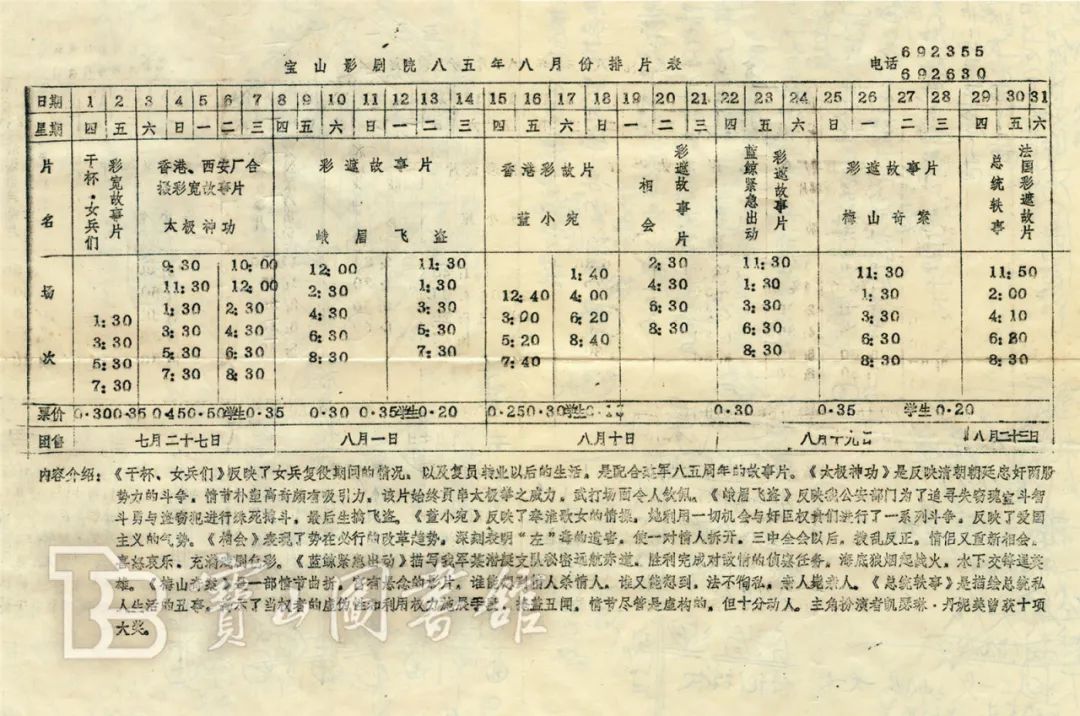 宝山影剧院八五年八月份排片表
电话 692355
692630
日期 1 2 3 4 5 6 7 8 9 10 11 12 13 14 15 16 17 18 19 20 21 22 23 24 25 26 27 28 29 30 31
星期 四 五 六 日 一 二 三 四 五 六 日 一 二 三 四 五 六 日 一 二 三 四 五 六 日 一 二 三 四 五 六
片名
干杯·女兵们
彩宽故事片
香港、西安厂合
摄彩宽故事片
太极神功
彩遮故事片
峨眉飞盗
香港彩故片
董小宛
相会
彩遮故事片
蓝鲸紧急出动
彩遮故事片
彩遮故事片
梅山奇案
总统轶事
法国彩遮故片
场次
1:30
3:30
5:30
7:30
9:30
11:30
1:30
3:30
5:30
7:30
10:00
12:00
2:30
4:30
6:30
8:30
12:00
2:30
4:30
6:30
8:30
11:30
1:30
3:30
5:30
7:30
12:40
3:00
5:20
7:40
1:40
4:00
6:20
8:40
2:30
4:30
6:30
8:30
11:30
1:30
3:30
6:30
8:30
11:30
1:30
3:30
6:30
8:30
11:50
2:00
4:10
6:20
8:30
票价 0·30 0·35 0·45 0·50 学生0·35 0·30 0·35 学生0·20 0·25 0·30 学生 0·30 0·35 学生0·20
团售 七月二十七日 八月一日 八月十日 八月十九日 八月二十三日
内容介绍：《干杯、女兵们》反映了女兵复役期间的情况，以及复员转业以后的生活，是配合建军八五周年的故事片。《太极神功》是反映清朝朝廷忠奸两股
势力的斗争，情节朴塑离奇颇有吸引力，该片始终贯串太极拳之威力，武打场面令人钦佩。《峨眉飞盗》反映我公安部门为了追寻失窃瑰宝斗智
斗勇与盗窃犯进行殊死搏斗，最后生擒飞盗。《董小宛》反映了秦淮歌女的情操，她利用一切机会与奸臣权贵们进行了一系列斗争，反映了爱国
主义的气势。《相会》表现了势在必行的改革趋势，深刻表明“左”毒的遗害，使一对情人拆开，三中全会以后，拨乱反正，情侣又重新相会。
喜怒哀乐，充满戏剧色彩。《蓝鲸紧急出动》描写我军某潜艇支队秘密远航赤道，胜利完成对敌情的侦察任务，海底狼烟起战火，水下交锋逞英
雄。《梅山奇案》是一部情节曲折，富有悬念的影片，谁能知情人杀情人，谁又能想到，法不徇私，亲人逮亲人。《总统轶事》是描绘总统私
人生活的丑事，揭示了当权者的虚伪性和利用权力施展手段，掩盖丑闻，情节尽管是虚构的，但十分动人。主角扮演者凯瑟琳·丹妮芙曾获十项
大奖。
寶山圖書館